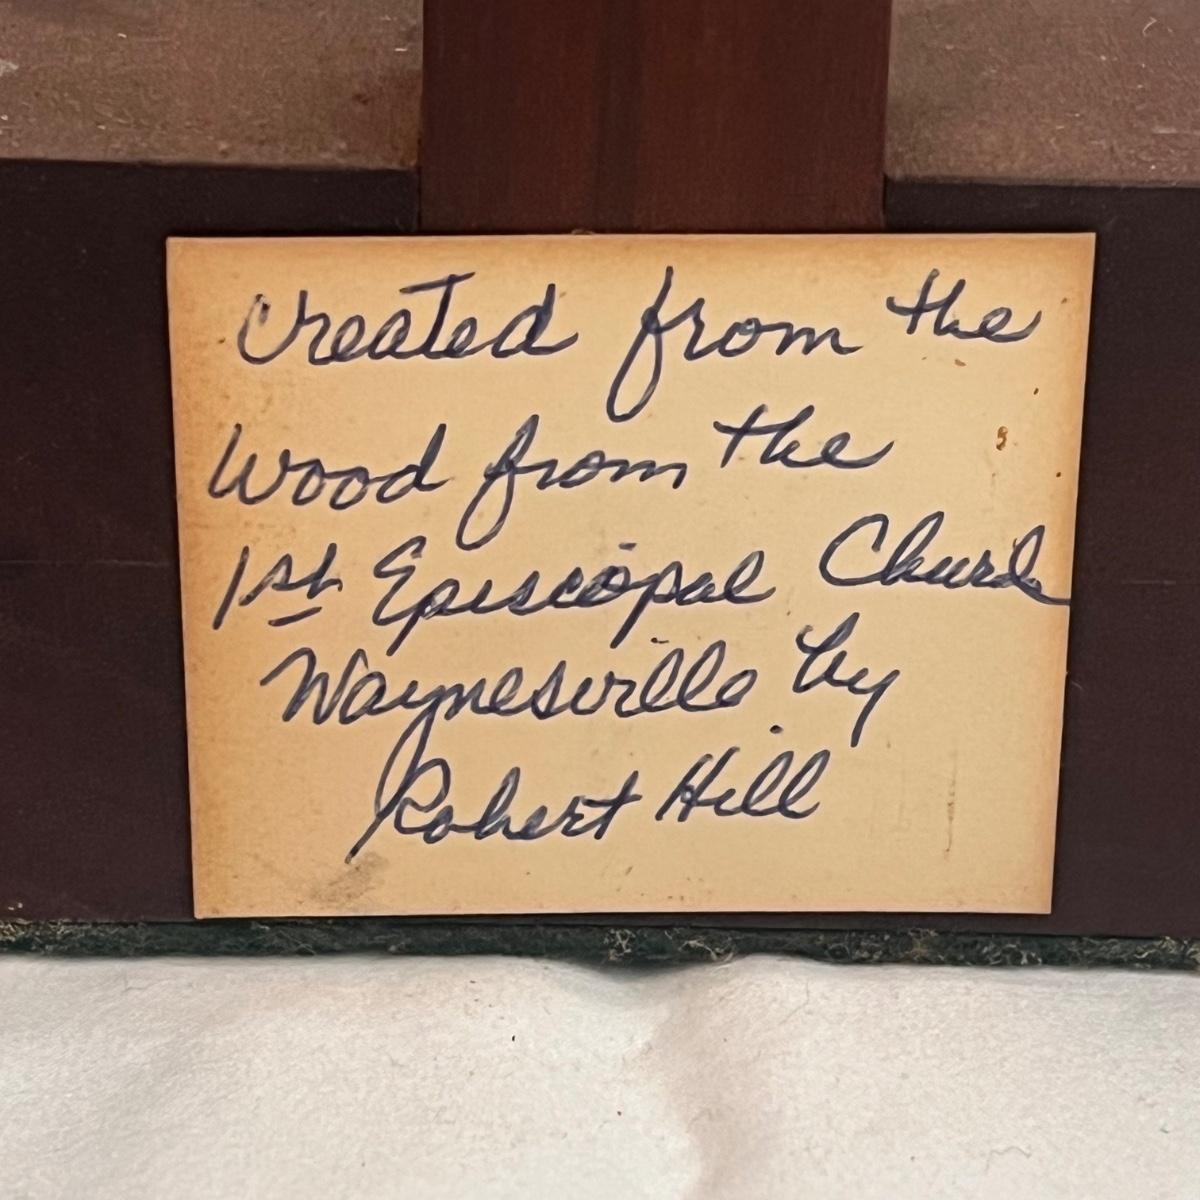 Created from the
Wood from the
1st Episcopal Church
Waynesville by
Robert Hill